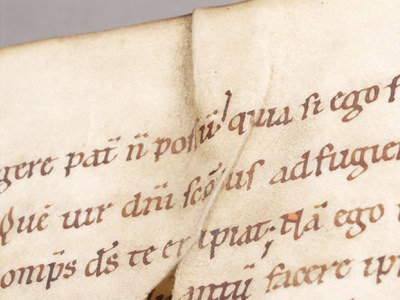 gere pat̄ n̄ possū quia si ego f
Quē uir dn̄i sc̄s us ad fugien
om̄ps d̄s te eripiat; Nā ego
antū facere ip